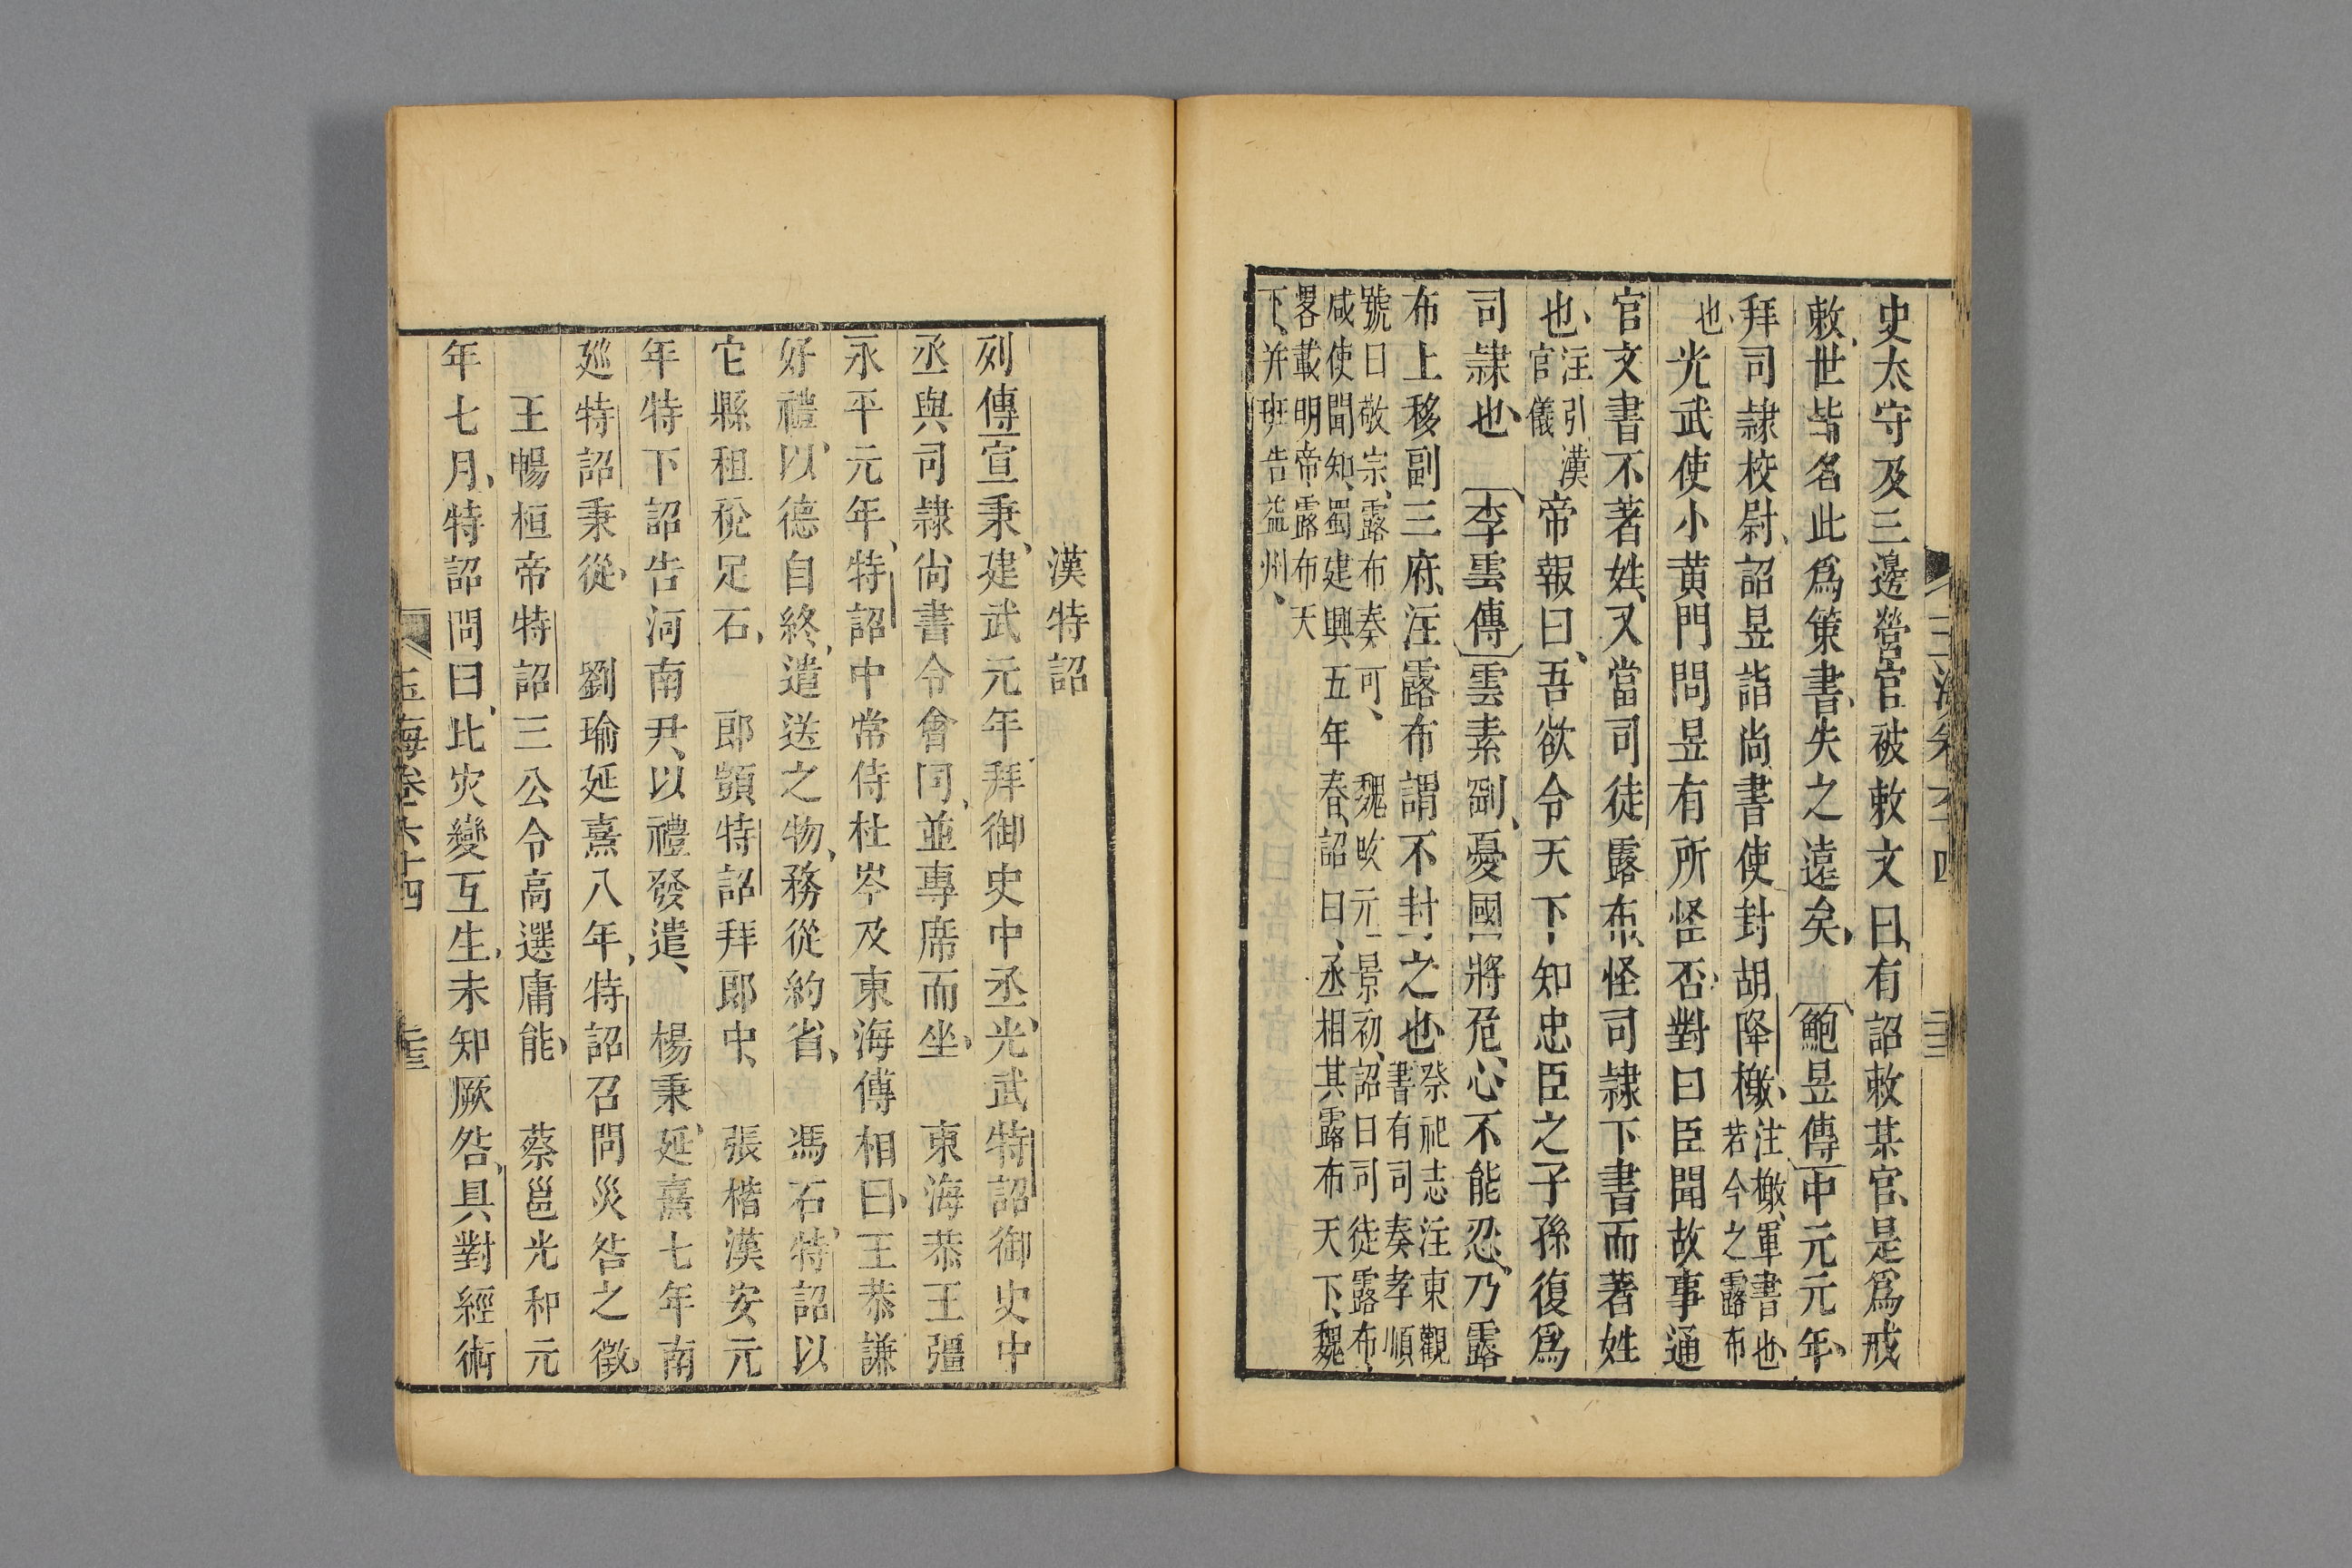 史太守及三邊營官被敕文曰有詔敕某官是爲戒
敕世皆名此爲策書失之遠矣 鮑昱傳中元元年
拜司隸校尉詔昱詣尚書使封胡降檄注檄軍書也若今之露布
也光武使小黃門問昱有所怪否對曰臣聞故事通
官文書不著姓又當司徒露布怪司隸下書而著姓
也注引漢官儀帝報曰吾欲令天下知忠臣之子孫復爲
司隸也 李雲傳雲素剛憂國將危心不能忍乃露
布上移副三府注露布謂不封之也祭祀志注東觀書有司奏孝順
號曰敬宗露布奏可 魏明元景初詔曰司徒露布
咸使聞知蜀建興五年春詔曰丞相其露布天下魏
畧載明帝露布天
下并班告益州
漢特詔
列傳宣秉建武元年拜御史中丞光武特詔御史中
丞與司隸尚書令會同並專席而坐 東海恭王彊
永平元年特詔中常侍杜岑及東海傅相曰王恭謙
好禮以德自終遣送之物務從約省 馮石特詔以
它縣租稅足石 郎顗特詔拜郎中 張楷漢安元
年特下詔告河南尹以禮發遣 楊秉延熹七年南
廵特詔秉從 劉瑜延熹八年特詔召問災咎之徵
王暢桓帝特詔三公令高選庸能 蔡邕光和元
年七月特詔問曰此灾變互生未知厥咎具對經術
玉海卷六十四